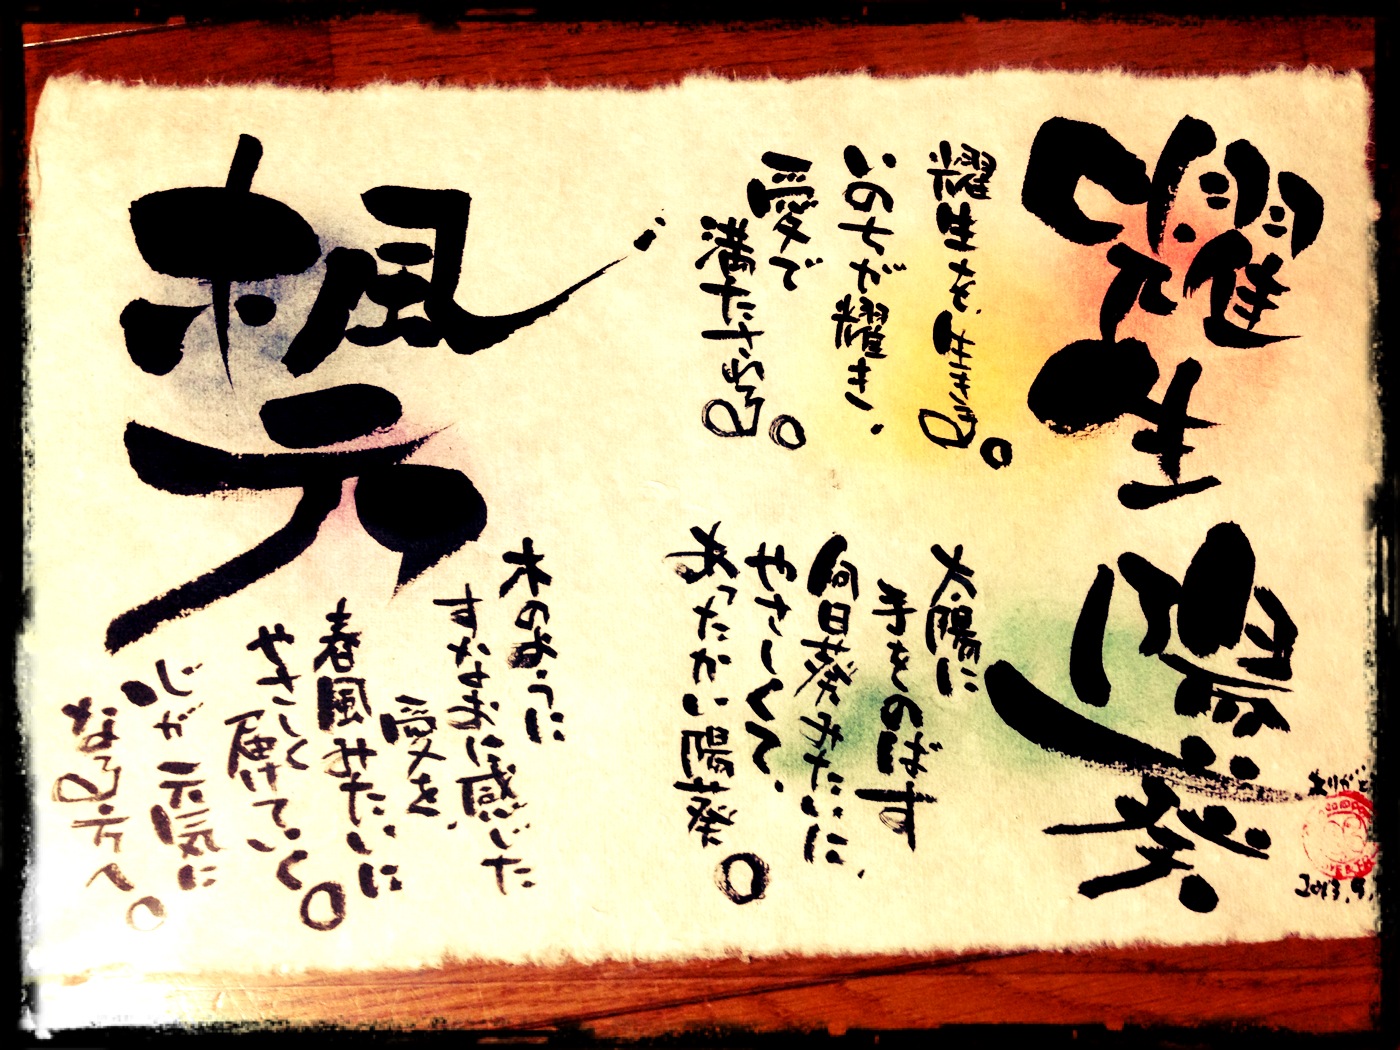 耀生
耀生を生きる。
いのちが耀き、
愛で
満たされる。
陽葵
太陽に
手をのばす
向日葵みたいに、
やさしくて、
あったかい陽葵。
楓元
木のように
すなおに感じた
愛を、
春風みたいに
やさしく届けていく。
心が元気に
なる方へ。
ありがと
2013.9.